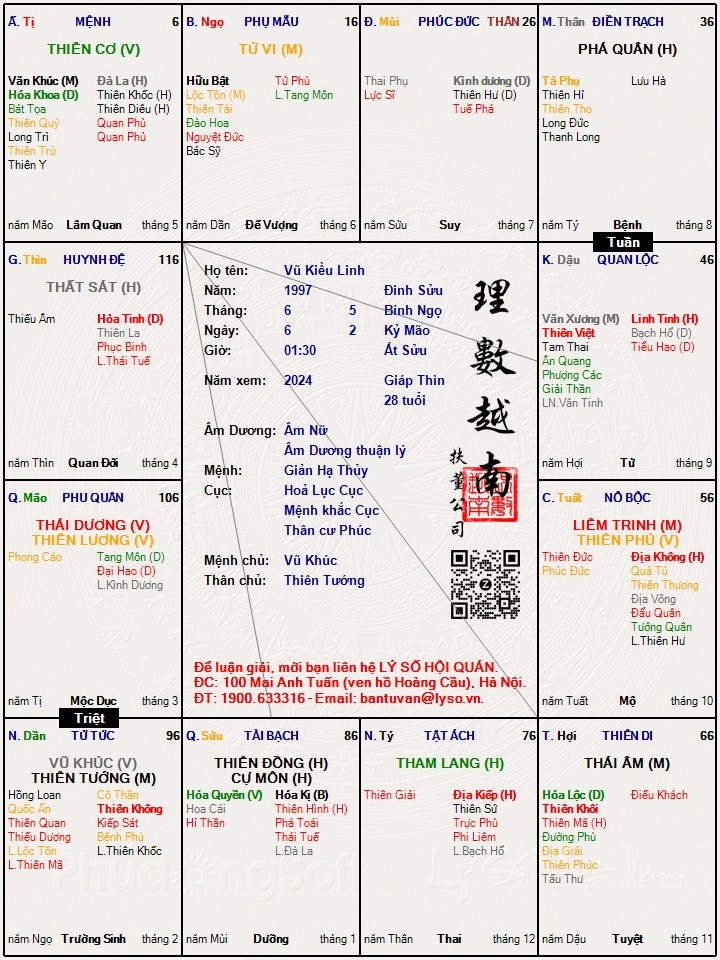 Ấ. Tị MỆNH 6
THIÊN CƠ (V)
Văn Khúc (M) Đà La (H)
Hóa Khoa (D) Thiên Khốc (H)
Bát Tọa Thiên Diêu (H)
Thiên Quý Quan Phù
Long Trì Quan Phủ
Thiên Trù
Thiên Y
năm Mão Lâm Quan tháng 5
B. Ngọ PHỤ MẪU 16
TỬ VI (M)
Hữu Bật Tử Phù
Lộc Tồn (M) L.Tang Môn
Thiên Tài
Đào Hoa
Nguyệt Đức
Bác Sỹ
năm Dần Đế Vượng tháng 6
Đ. Mùi PHÚC ĐỨC THÂN 26
Thai Phụ Kình dương (D)
Lực Sĩ Thiên Hư (D)
Tuế Phá
năm Sửu Suy tháng 7
M. Thân ĐIỀN TRẠCH 36
PHÁ QUÂN (H)
Tả Phụ Lưu Hà
Thiên Hỉ
Thiên Thọ
Long Đức
Thanh Long
năm Tý Bệnh tháng 8
Tuần
G. Thìn HUYNH ĐỆ 116
THẤT SÁT (H)
Thiếu Âm Hỏa Tinh (D)
Thiên La
Phục Binh
L.Thái Tuế
năm Thìn Quan Đới tháng 4
Họ tên: Vũ Kiều Linh
Năm: 1997 Đinh Sửu
Tháng: 6 5 Bính Ngọ
Ngày: 6 2 Kỷ Mão
Giờ: 01:30 Ất Sửu
Năm xem: 2024 Giáp Thìn
28 tuổi
Âm Dương: Âm Nữ
Âm Dương thuận lý
Mệnh: Giản Hạ Thủy
Cục: Hoả Lục Cục
Mệnh khắc Cục
Thân cư Phúc
Mệnh chủ: Vũ Khúc
Thân chủ: Thiên Tướng
理數越南
扶董公司
Để luận giải, mời bạn liên hệ LÝ SỐ HỘI QUÁN.
ĐC: 100 Mai Anh Tuấn (ven hồ Hoàng Cầu), Hà Nội.
ĐT: 1900.633316 - Email: bantuvan@lyso.vn.
K. Dậu QUAN LỘC 46
Văn Xương (M) Linh Tinh (H)
Thiên Việt Bạch Hổ (D)
Tam Thai Tiểu Hao (D)
Ân Quang
Phượng Các
Giải Thần
LN.Văn Tinh
năm Hợi Tử tháng 9
Q. Mão PHU QUÂN 106
THÁI DƯƠNG (V)
THIÊN LƯƠNG (V)
Phong Cáo Tang Môn (D)
Đại Hao (D)
L.Kình Dương
năm Tị Mộc Dục tháng 3
Triệt
C. Tuất NÔ BỘC 56
LIÊM TRINH (M)
THIÊN PHỦ (V)
Thiên Đức Địa Không (H)
Phúc Đức Quả Tú
Thiên Thương
Địa Võng
Đẩu Quân
Tướng Quân
L.Thiên Hư
năm Tuất Mộ tháng 10
N. Dần TỬ TỨC 96
VŨ KHÚC (V)
THIÊN TƯỚNG (M)
Hồng Loan Cô Thần
Quốc Ấn Thiên Không
Thiên Quan Kiếp Sát
Thiếu Dương Bệnh Phù
L.Lộc Tồn L.Thiên Khốc
L.Thiên Mã
năm Ngọ Trường Sinh tháng 2
Q. Sửu TÀI BẠCH 86
THIÊN ĐỒNG (H)
CỰ MÔN (H)
Hóa Quyền (V) Hóa Kị (B)
Hoa Cái Thiên Hình (H)
Hỉ Thần Phá Toái
Thái Tuế
L.Đà La
năm Mùi Dưỡng tháng 1
N. Tý TẬT ÁCH 76
THAM LANG (H)
Thiên Giải Địa Kiếp (H)
Thiên Sứ
Trực Phù
Phi Liêm
L.Bạch Hổ
năm Thân Thai tháng 12
T. Hợi THIÊN DI 66
THÁI ÂM (M)
Hóa Lộc (D) Điếu Khách
Thiên Khôi
Thiên Mã (H)
Đường Phù
Địa Giải
Thiên Phúc
Tấu Thư
năm Dậu Tuyệt tháng 11